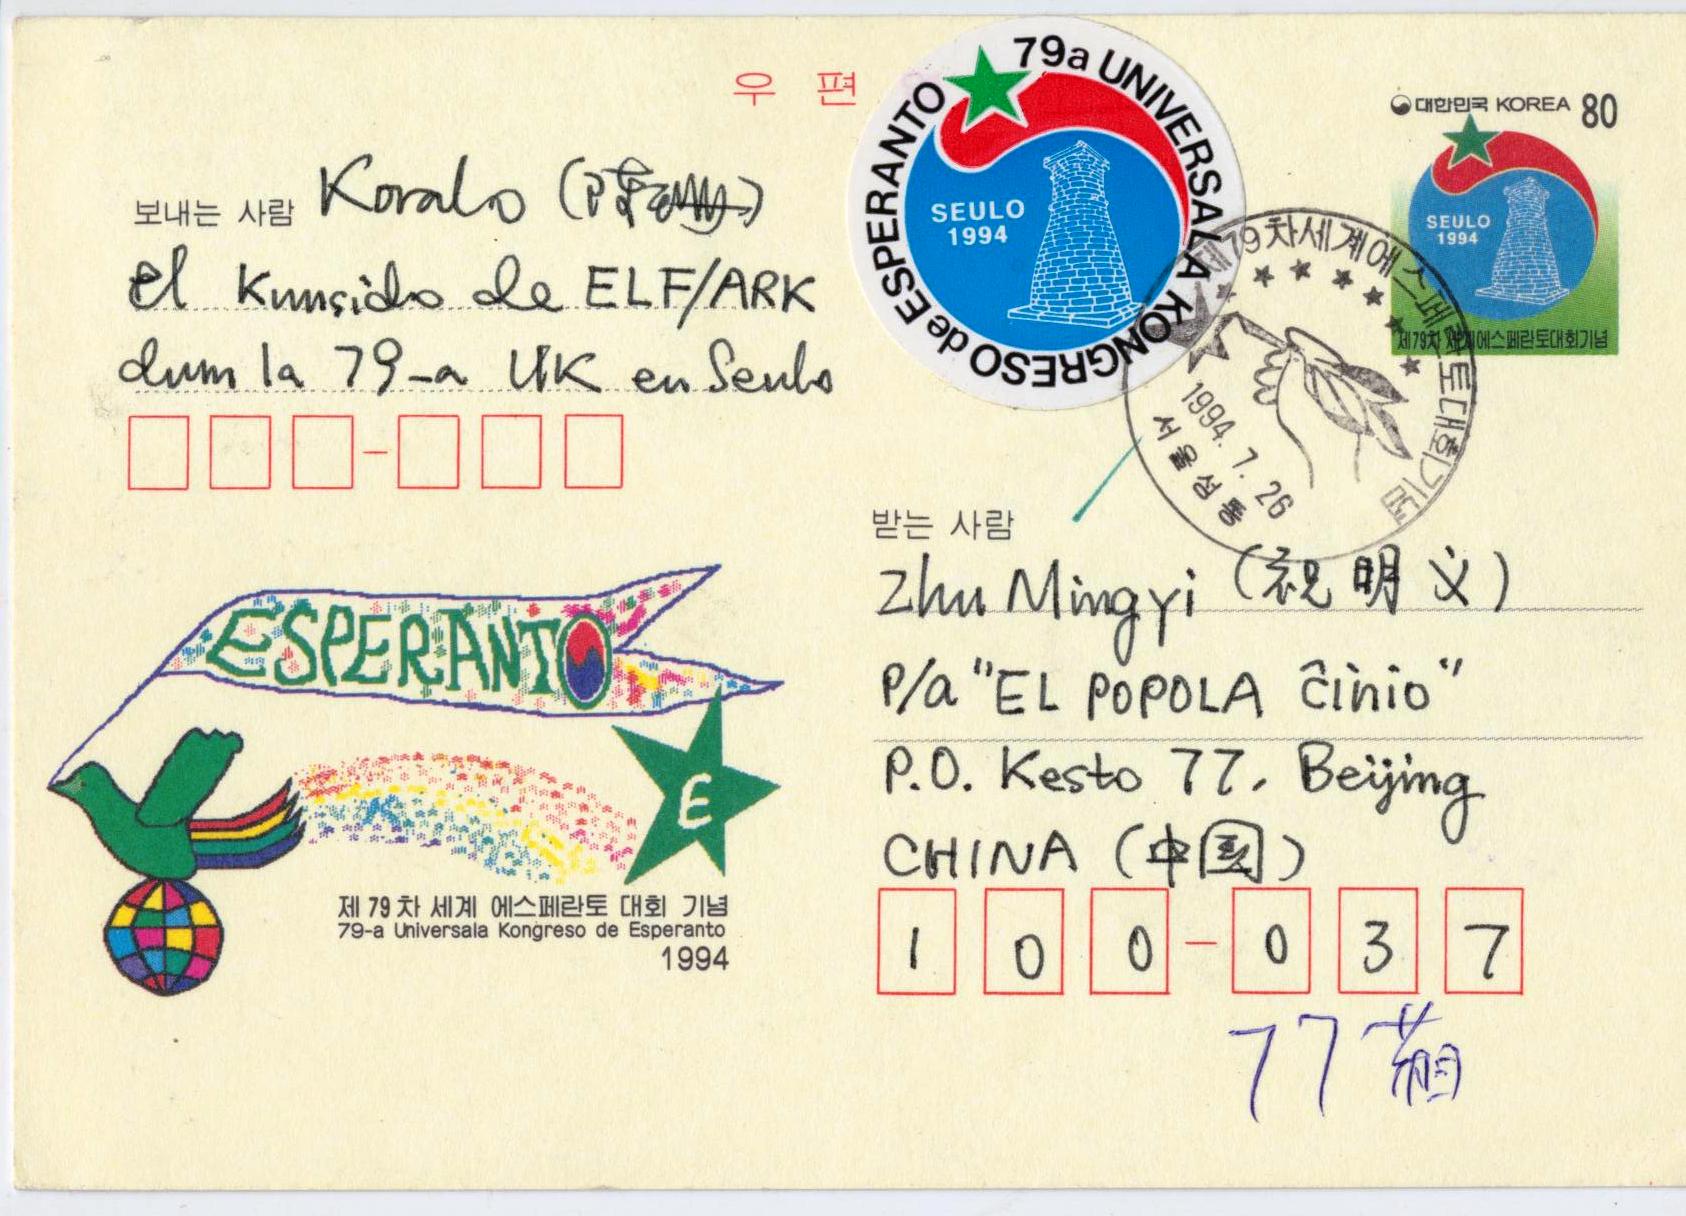 우 편
79a UNIVERSALA KONGRESO de ESPERANTO
SEULO
1994
대한민국 KOREA 80
SEULO
1994
제79차 세계에스페란토대회기념
제79차세계에스페란토대회기념
1994. 7. 26
서울성동
보내는 사람 Koralo
el Kunsido de ELF/ARK
dum la 79-a UK en Seulo
ESPERANTO
E
제 79 차 세계 에스페란토 대회 기념
79-a Universala Kongreso de Esperanto
1994
받는 사람
Zhu Mingyi (祝明义)
P/a "EL POPOLA Ĉinio"
P.O. Kesto 77, Beijing
CHINA (中国)
1 0 0 - 0 3 7
77 箱